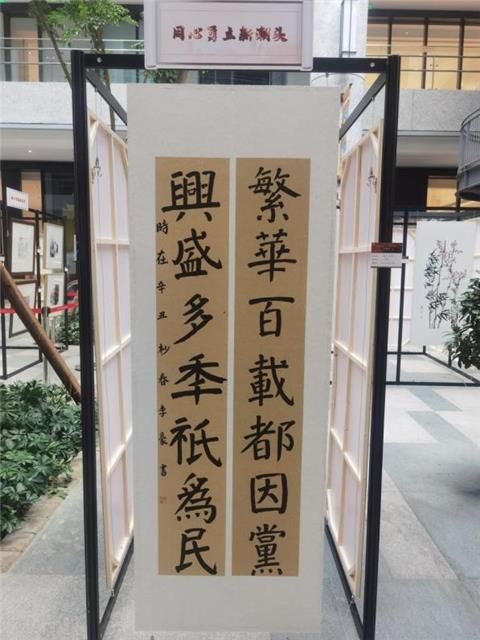 同心勇立新潮头
繁華百載都因黨
興盛多年祇為民
時在辛丑杪春李豪書